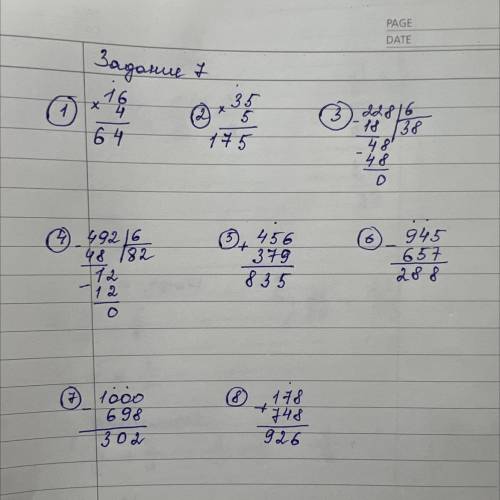 PAGE
DATE
Задание 7
1 × 16
4
64
2 × 35
5
175
3 - 228 | 6
18 | 38
- 48
48
0
4 - 492 | 6
48 | 82
- 12
12
0
5 + 456
379
835
6 - 945
657
288
7 - 1000
698
302
8 + 178
748
926